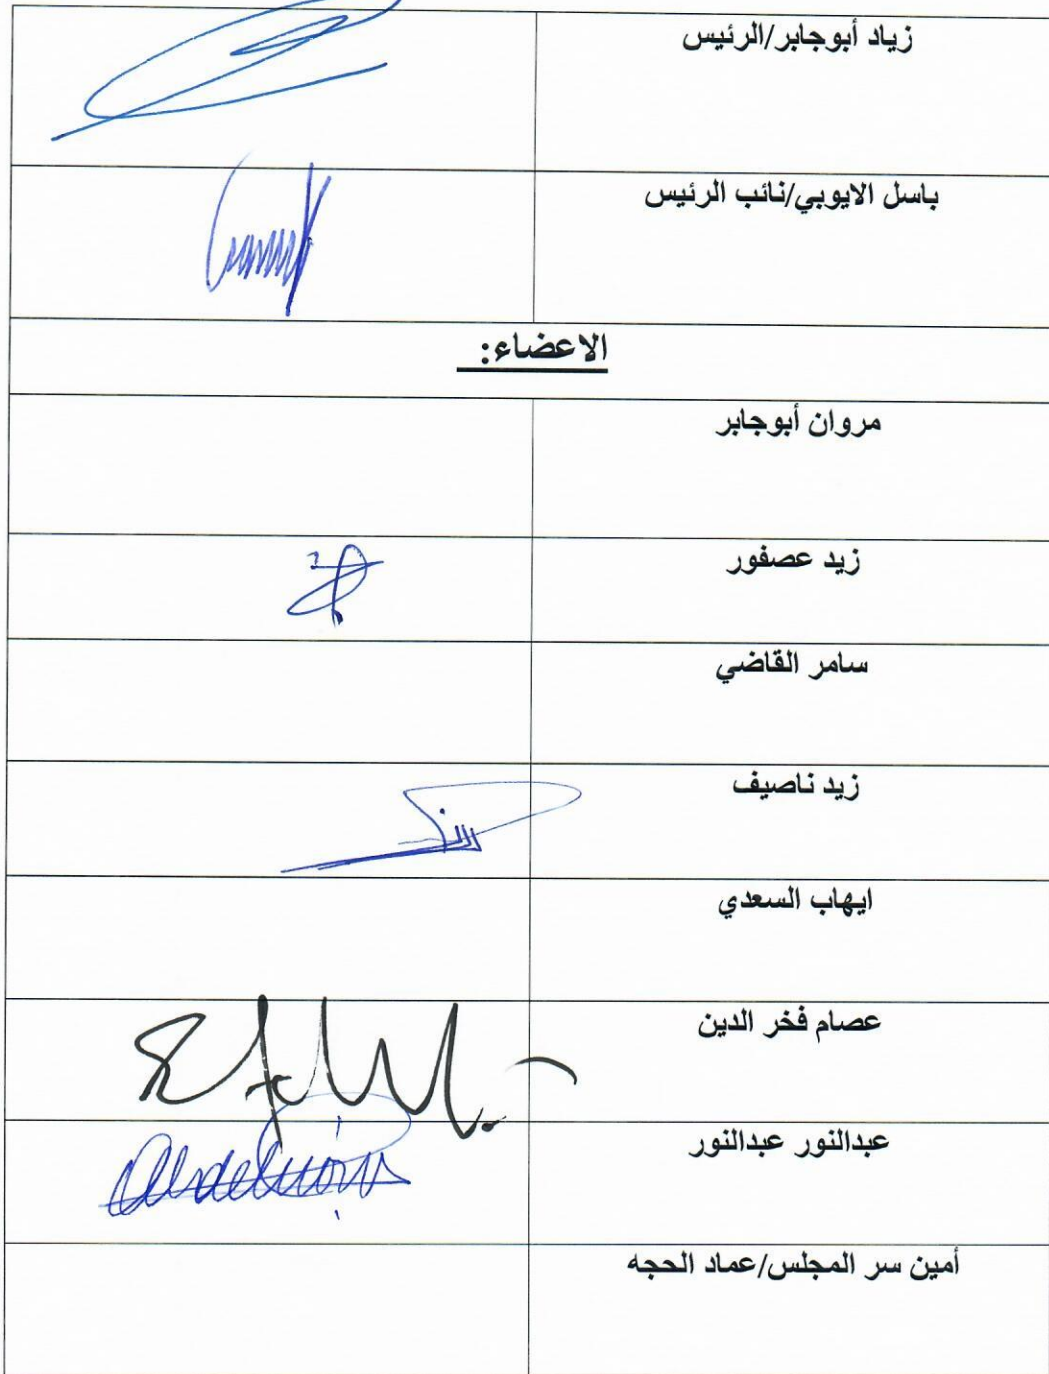 زياد أبوجابر/الرئيس
باسل الايوبي/نائب الرئيس
الاعضاء:
مروان أبوجابر
زيد عصفور
سامر القاضي
زيد ناصيف
ايهاب السعدي
عصام فخر الدين
عبدالنور عبدالنور
أمين سر المجلس/عماد الحجه